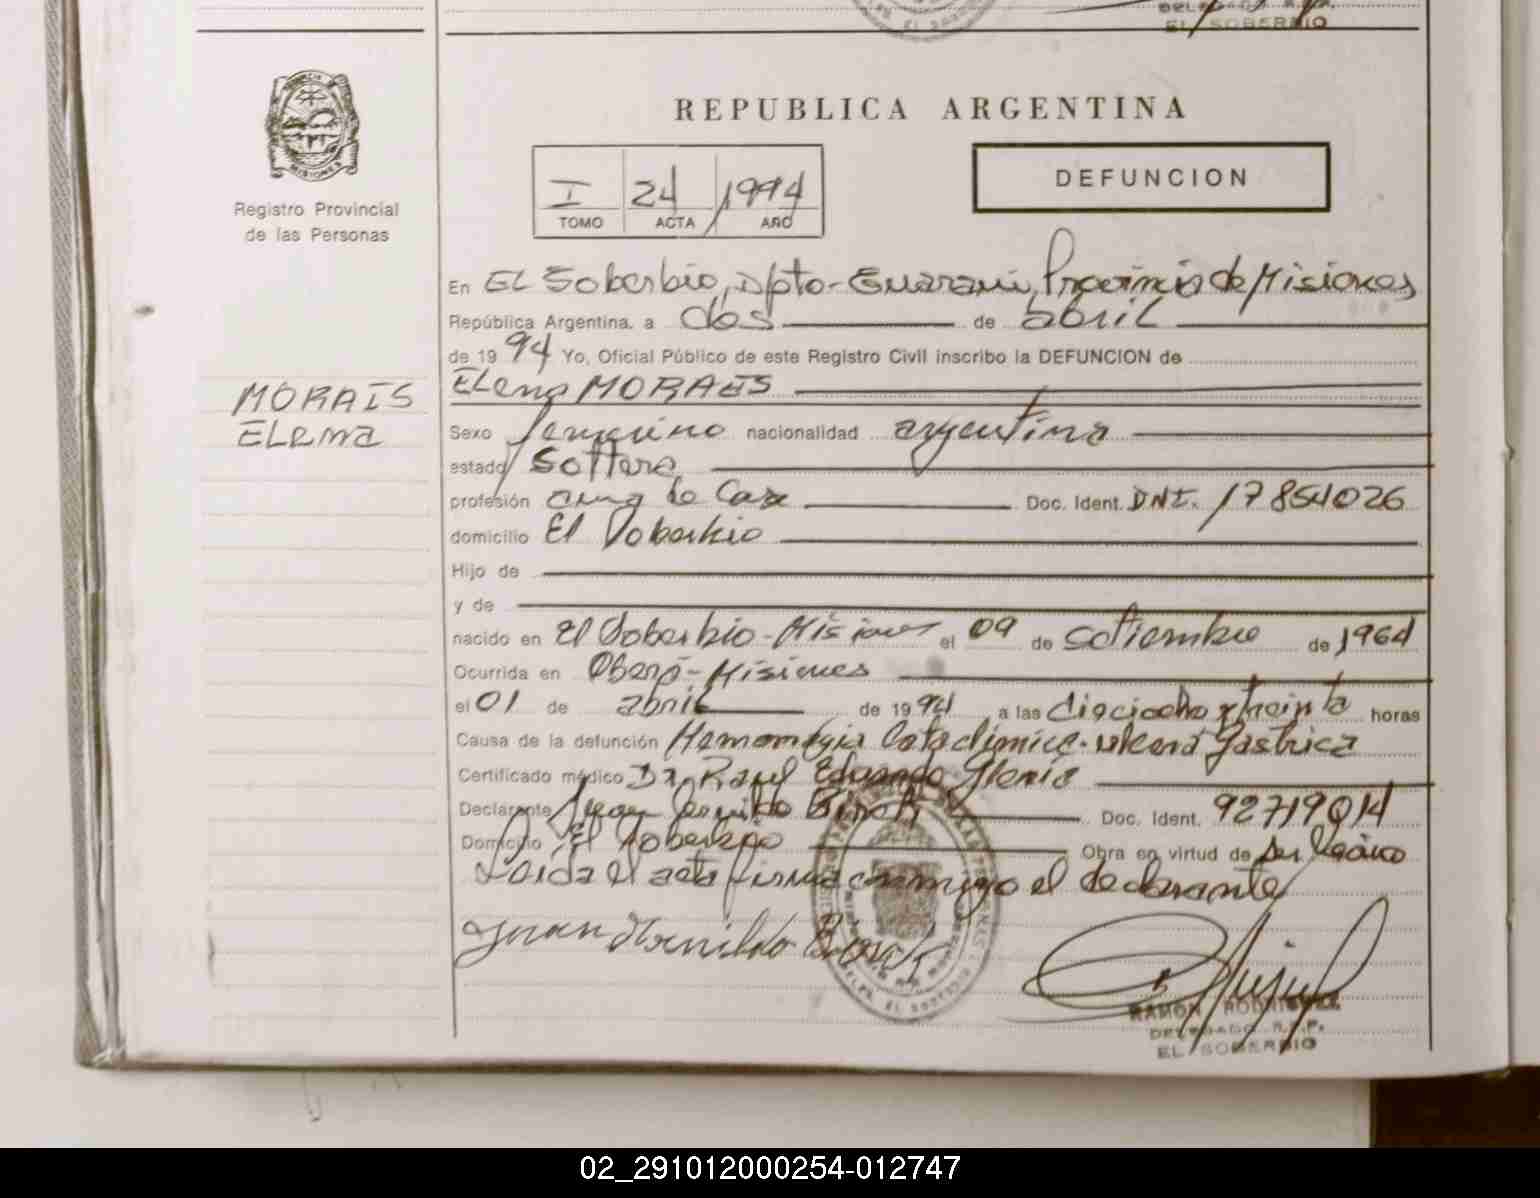 EL SOBERBIO
PROVINCIA
MISIONES
Registro Provincial
de las Personas
REPUBLICA ARGENTINA
I 24 1994
TOMO ACTA AÑO
DEFUNCION
En EL Soberbio, Dpto-Guarani, Provincia de Misiones
República Argentina, a dos de abril
de 1994 Yo, Oficial Público de este Registro Civil inscribo la DEFUNCION de
MORAIS
ELena MORAIS
ELEMA
Sexo femenino nacionalidad argentina
estado Soltera
profesión ama de Casa Doc. Ident. DNI. 17854026
domicilio El Soberbio
Hijo de
y de
nacido en El Soberbio-Misiones el 09 de setiembre de 1964
Ocurrida en Oberá-Misiones
el 01 de abril de 1994 a las dieciocho y treinta horas
Causa de la defunción Hemorragia Cataclimica-ulcera gastrica
Certificado médico Dr. Raul Eduardo
Declarante Juan Doc. Ident. 92719014
Domicilio El Soberbio Obra en virtud de
Leida el acta firma conmigo el declarante
Juan
RAMON RODRIGUEZ
DELEGADO R.P.P.
EL SOBERBIO
02_291012000254-012747